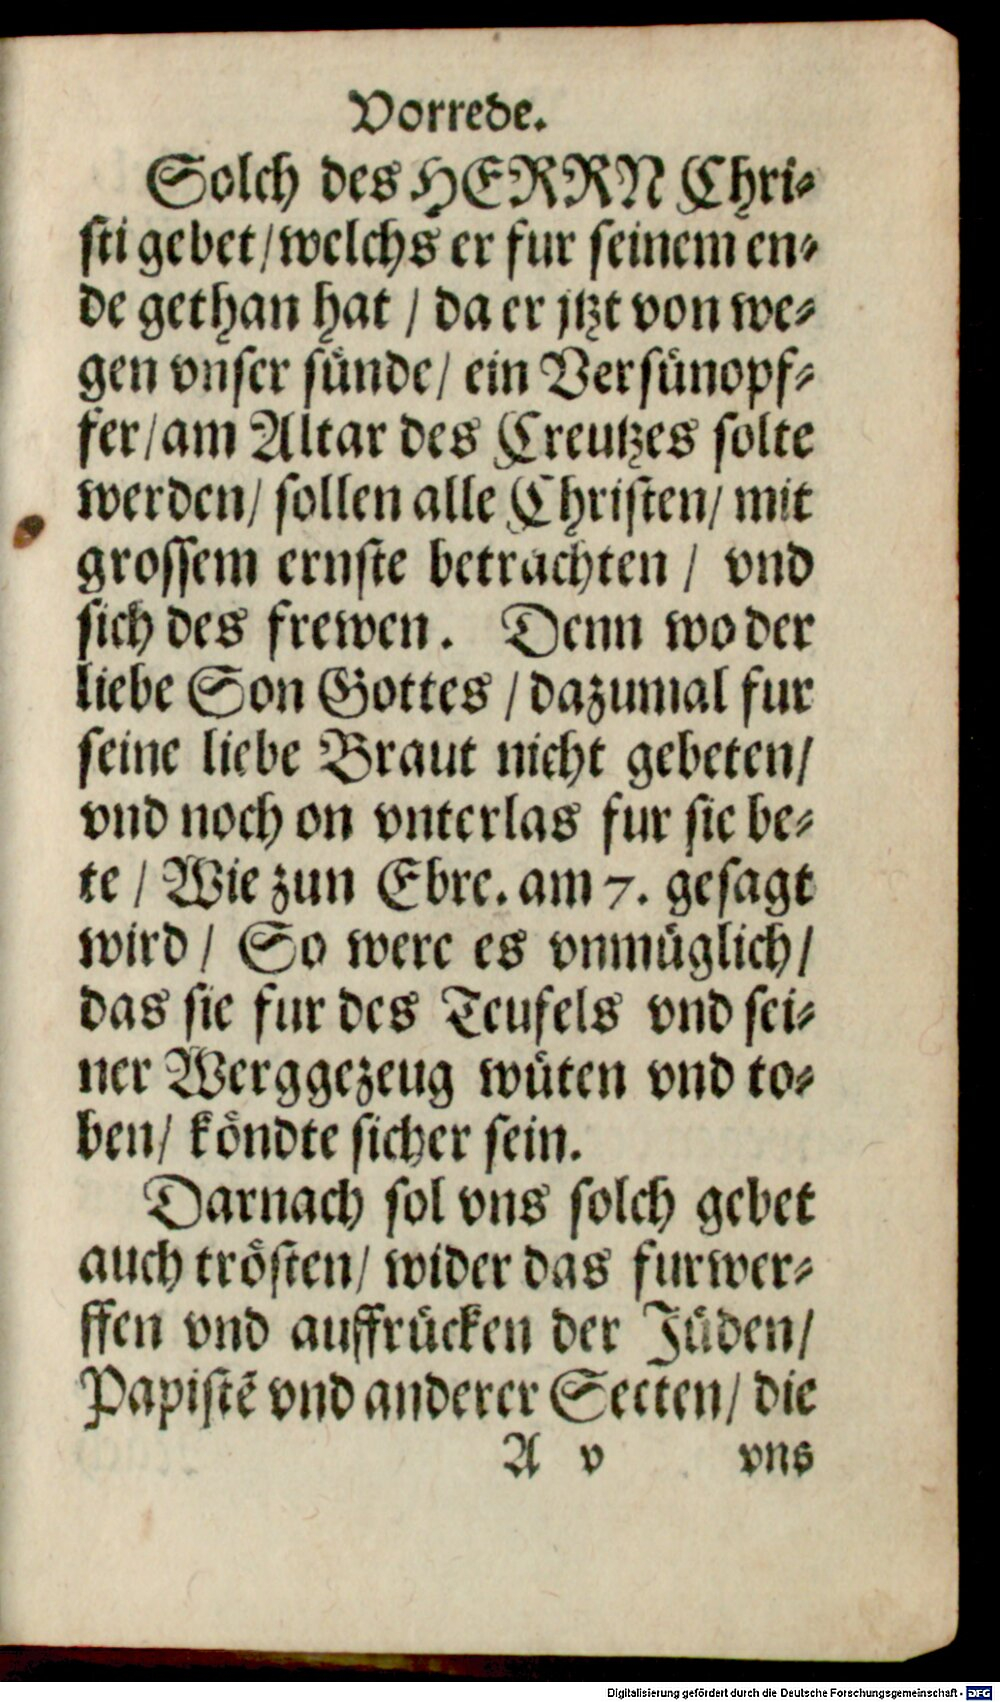 Vorrede.
Solch des HERRN Chri⸗
sti gebet/ welchs er fur seinem en⸗
de gethan hat / da er jtzt von we⸗
gen vnser sünde/ ein Versünopf⸗
fer/ am Altar des Creutzes solte
werden/ sollen alle Christen/ mit
grossem ernste betrachten / vnd
sich des frewen. Denn wo der
liebe Son Gottes / dazumal fur
seine liebe Braut nicht gebeten/
vnd noch on vnterlas fur sie be⸗
te / Wie zun Ebre. am 7. gesagt
wird / So were es vnmüglich/
das sie fur des Teufels vnd sei⸗
ner Werggezeug wüten vnd to⸗
ben/ köndte sicher sein.
Darnach sol vns solch gebet
auch trösten/ wider das furwer⸗
ffen vnd auffrücken der Jüden/
Papistē vnd anderer Secten/ die
A v vns
Digitalisierung gefördert durch die Deutsche Forschungsgemeinschaft - DFG